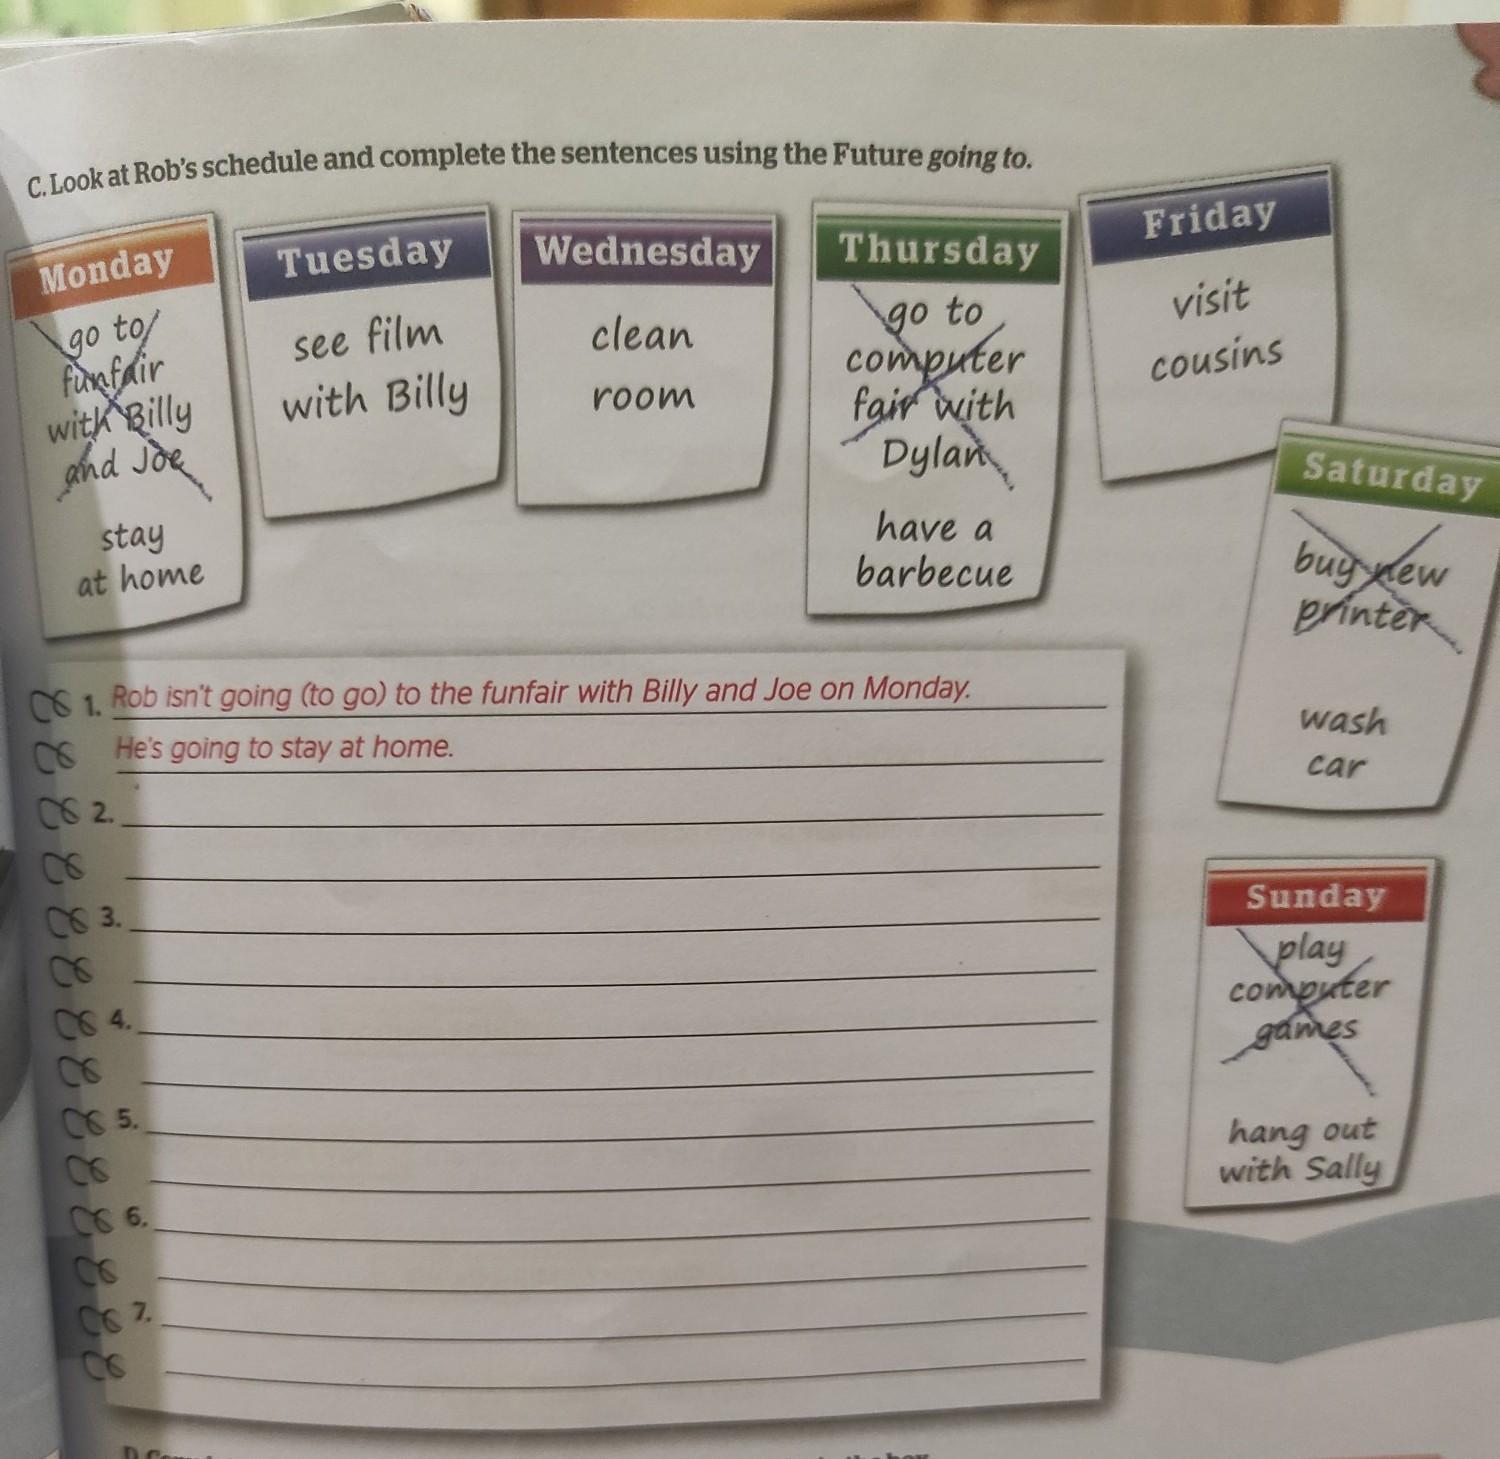 C. Look at Rob's schedule and complete the sentences using the Future going to.
Monday
go to
funfair
with Billy
and Joe
stay
at home
Tuesday
see film
with Billy
Wednesday
clean
room
Thursday
go to
computer
fair with
Dylan
have a
barbecue
Friday
visit
cousins
Saturday
buy new
printer
wash
car
Sunday
play
computer
games
hang out
with Sally
1. Rob isn't going (to go) to the funfair with Billy and Joe on Monday.
He's going to stay at home.
2.
3.
4.
5.
6.
7.